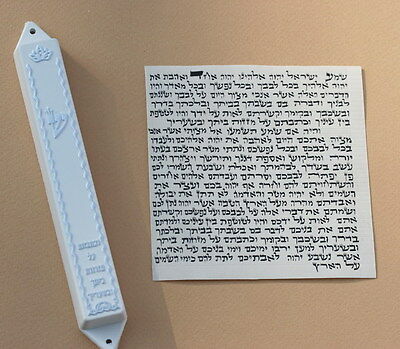 שמע ישראל יהוה אלהינו יהוה אחד ואהבת את
יהוה אלהיך בכל לבבך ובכל נפשך ובכל מאדך והיו
הדברים האלה אשר אנכי מצוך היום על לבבך ושננתם
לבניך ודברת בם בשבתך בביתך ובלכתך בדרך
ובשכבך ובקומך וקשרתם לאות על ידך והיו לטטפת
בין עיניך וכתבתם על מזזות ביתך ובשעריך
והיה אם שמע תשמעו אל מצותי אשר אנכי
מצוה אתכם היום לאהבה את יהוה אלהיכם ולעבדו
בכל לבבכם ובכל נפשכם ונתתי מטר ארצכם בעתו
יורה ומלקוש ואספת דגנך ותירשך ויצהרך ונתתי
עשב בשדך לבהמתך ואכלת ושבעת השמרו לכם
פן יפתה לבבכם וסרתם ועבדתם אלהים אחרים
והשתחויתם להם וחרה אף יהוה בכם ועצר את
השמים ולא יהיה מטר והאדמה לא תתן את יבולה
ואבדתם מהרה מעל הארץ הטבה אשר יהוה נתן לכם
ושמתם את דברי אלה על לבבכם ועל נפשכם וקשרתם
אתם לאות על ידכם והיו לטוטפת בין עיניכם ולמדתם
אתם את בניכם לדבר בם בשבתך בביתך ובלכתך
בדרך ובשכבך ובקומך וכתבתם על מזוזות ביתך
ובשעריך למען ירבו ימיכם וימי בניכם על האדמה
אשר נשבע יהוה לאבתיכם לתת להם כימי השמים
על הארץ
שדי
וכתבתם
על
מזוזות
ביתך
ובשעריך